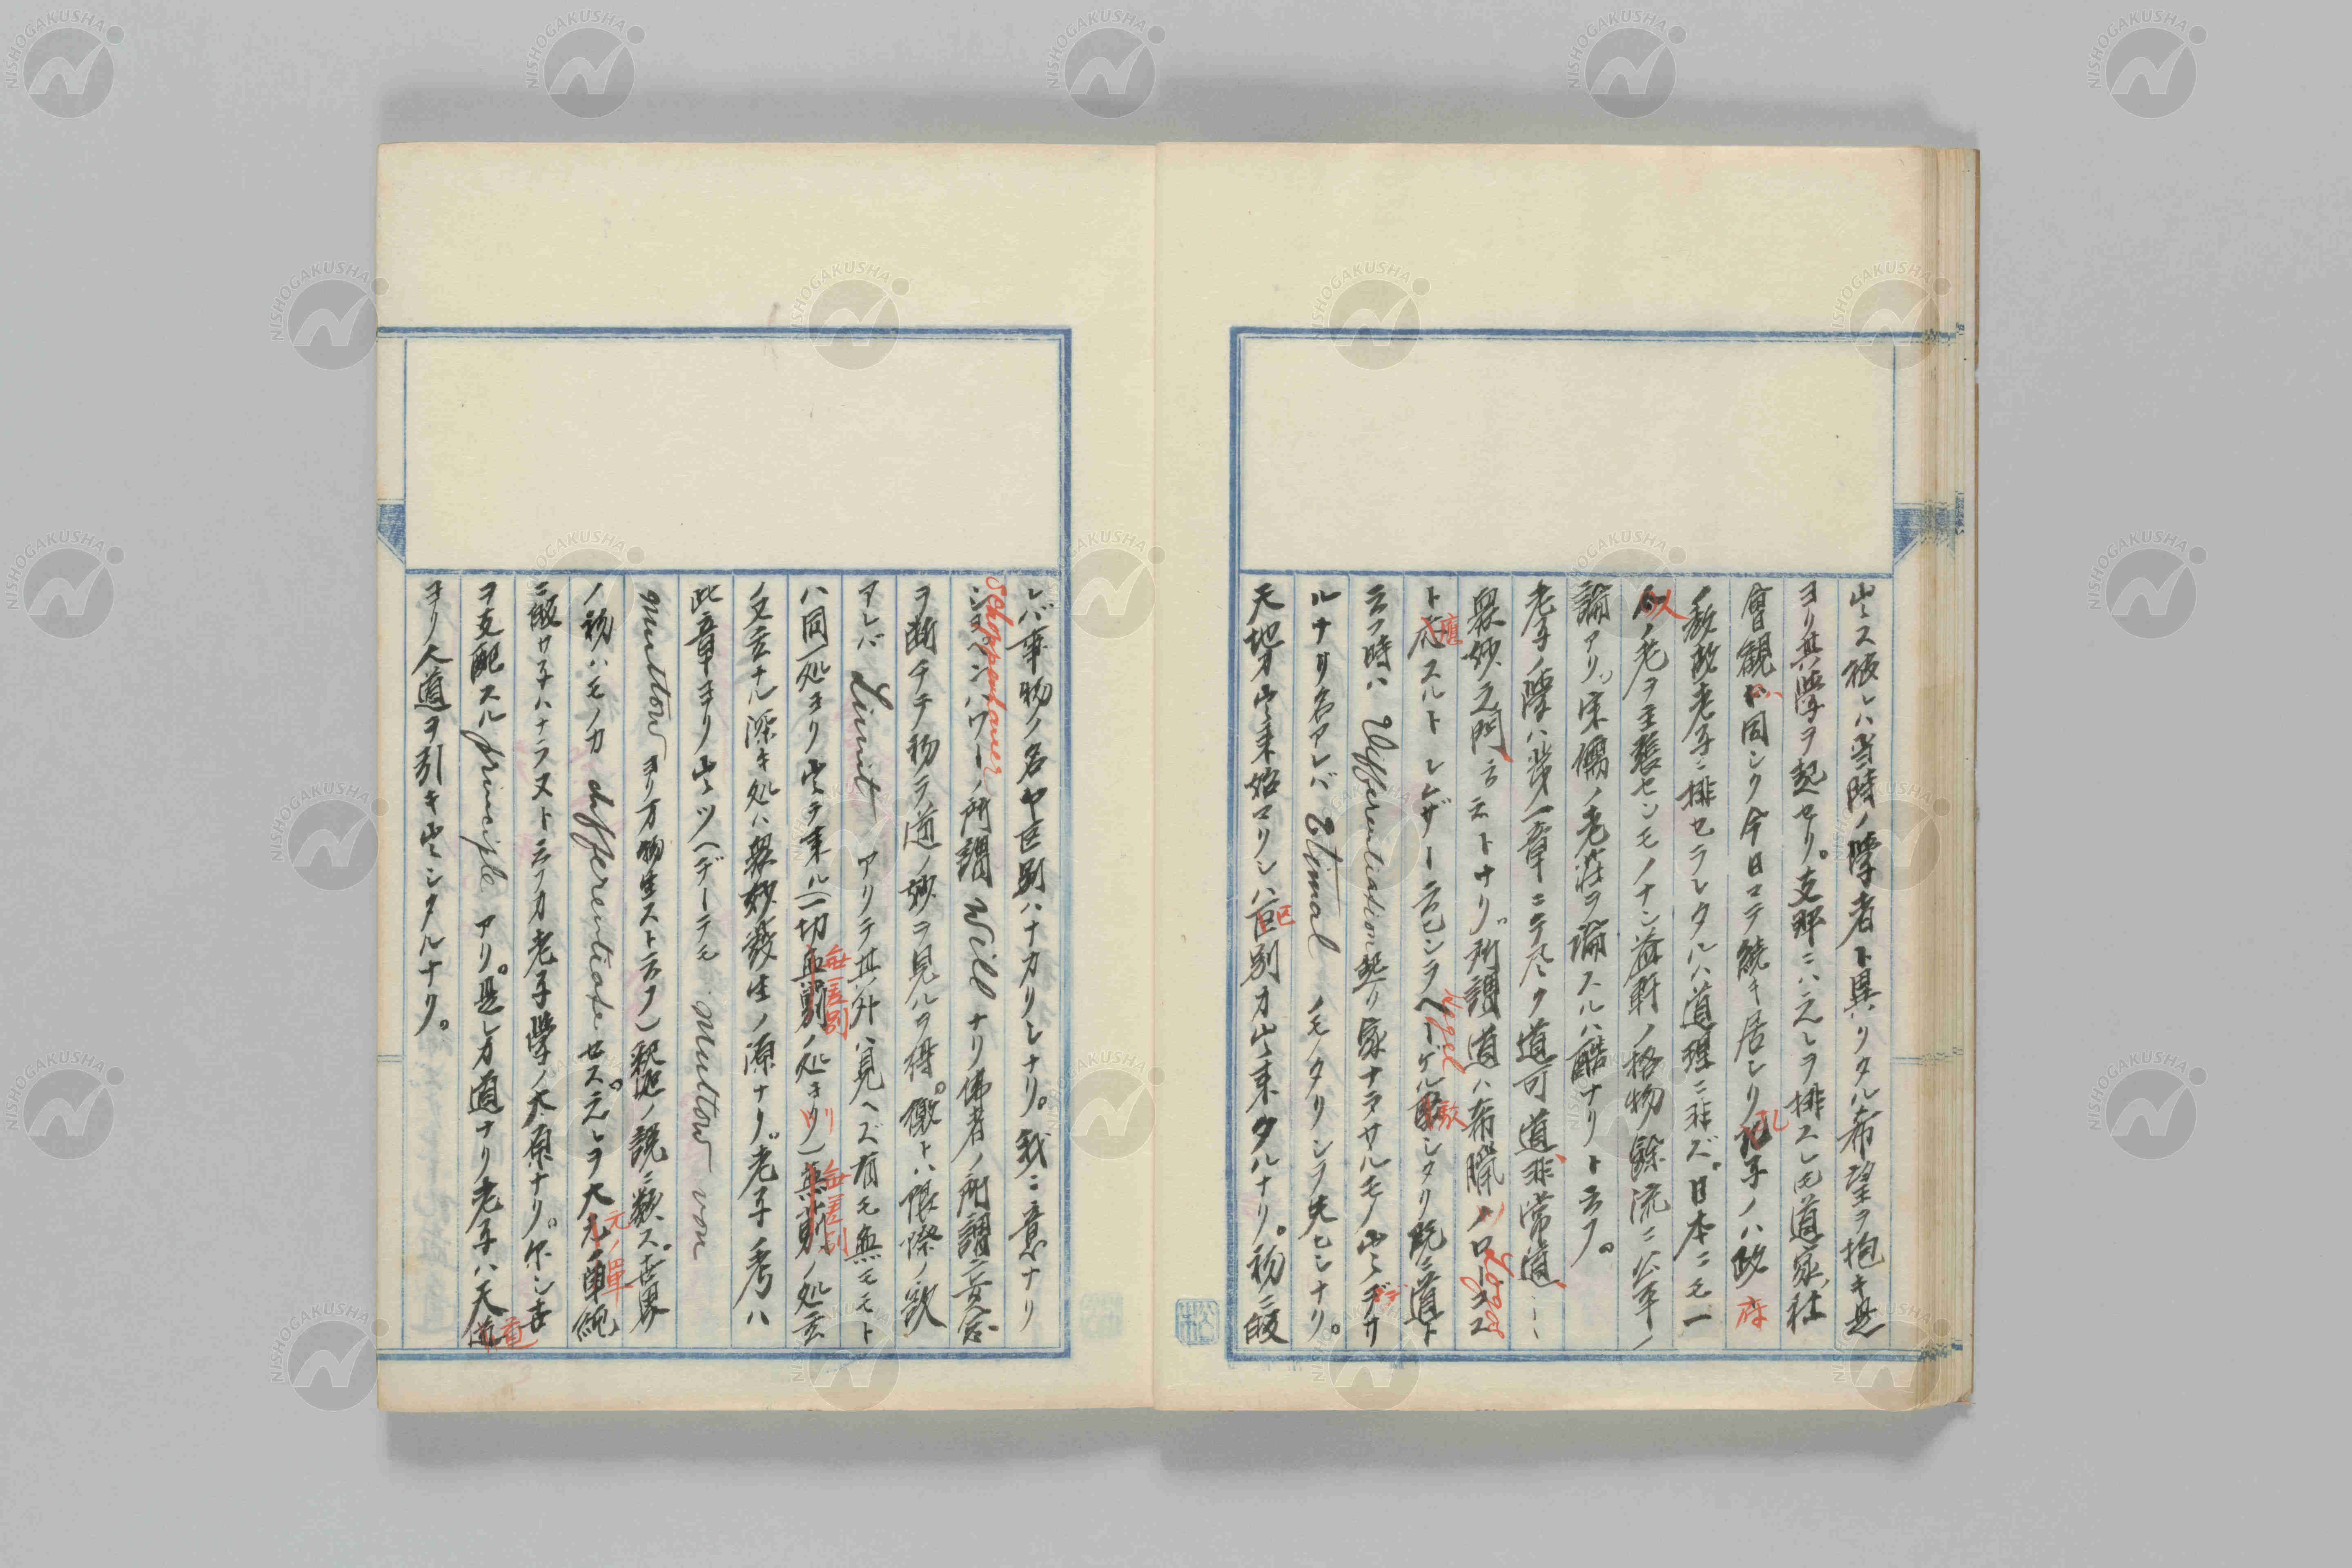 出ス彼レハ当時ノ学者ト異リタル希望ヲ抱キ是
ヨリ其学ヲ起セリ。支那ニハ之レヲ排スレ𪜈道家、社
會観ハ同シク今日マテ続キ居レリ孔子ノハ政府
ノ教故老子ニ排セラレタルハ道理ニ非ズ。日本ニモ一
人ノ老ヲ主張センモノナシ益軒ノ格物餘流ニ公平ノ
論アリ。宋儒ノ老荘ヲ論スルハ酷ナリト云フ。
老子ノ学ハ第一章ニテ尽ク道可道非常道……
衆妙之門、云云トナリ。所謂道ハ希臘ノロゴス Logos
ト應スルト シレザー云ヒシヲヘーゲル Hegel 駁シタリ既ニ道ト
云フ時ハ Differentiation 起リ家ナラサルモノ出デザ
ルナリ名アレバ Eternal ノモノタリシヲ失ヒシナリ。
天地ガ出来始マリシハ区別ガ出来タルナリ。初ニ皈
レバ事物ノ名ヤ区別ハナカリシナリ。我ニ意ナリ
ショペンハワー Schoppenhauer ノ所謂 Will ナリ佛者ノ所謂意念
ヲ断チテ物ヲ道ノ妙ヲ見ルヲ得。徼トハ限際ノ欲
アレバ Limit アリテ其外ハ見ヘズ有モ無モモト
ハ同一処ヨリ出テ来ル(一切無差別ノ処ヨリ)無差別ノ処玄
ノ又玄ナル深キ処ハ衆妙發生ノ源ナリ。老子ノ考ハ
此章ヨリ出ツヘーデーモ multow von
multow ヨリ万物生スト云フ)釈迦ノ説ニ類ス。世界
ノ初ハモノカ differentiate セス。之レヲ大元ノ単純
ニ皈ケ子ハナラヌト云フカ老子学ノ大原ナリ。尓シ吉
ヲ支配スル principle アリ。是レカ道ナリ老子ハ天道
ヨリ人道ヲ引キ出シタルナリ。